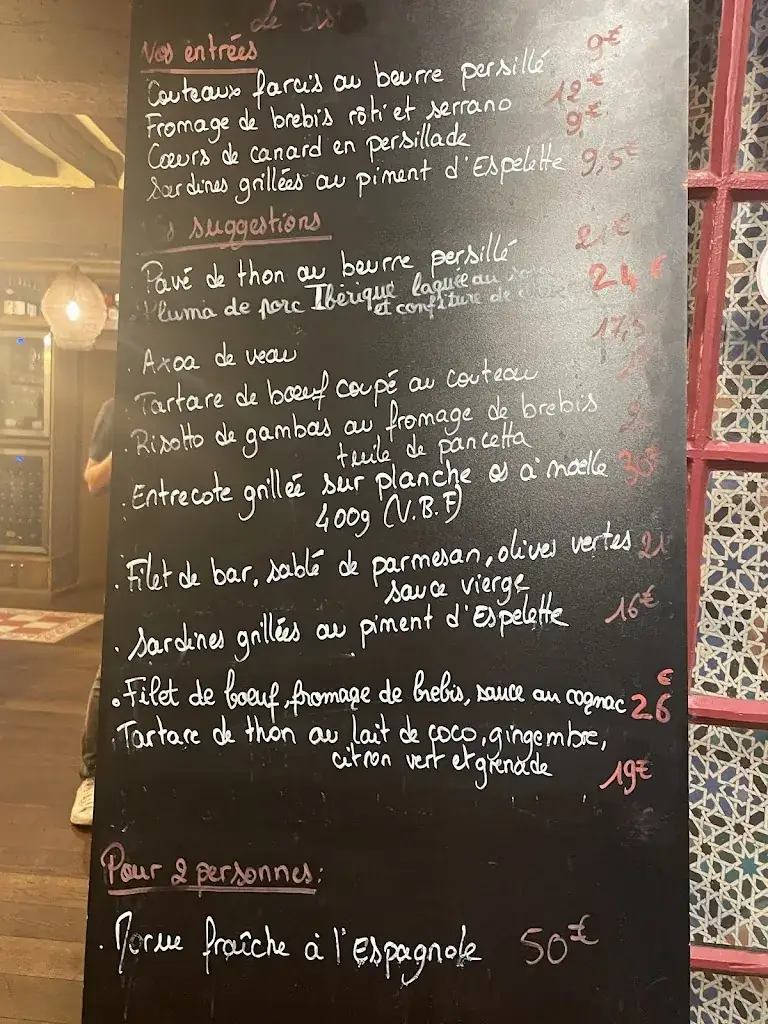 Nos entrées
Couteaux farcis au beurre persillé 9€
Fromage de brebis rôti et serrano 12€
Coeurs de canard en persillade 9€
Sardines grillées au piment d'Espelette 9,5€
suggestions
Pavé de thon au beurre persillé 21€
Pluma de porc Ibérique laquée au
et confiture de 24€
. Axoa de veau 17,5
. Tartare de boeuf coupé au couteau
. Risotto de gambas au fromage de brebis
tuile de pancetta
. Entrecote grillée sur planche os à moelle 30€
400g (V.B.F)
. Filet de bar, sablé de parmesan, olives vertes 21
sauce vierge
. Sardines grillées au piment d'Espelette 16€
. Filet de boeuf, fromage de brebis, sauce au cognac 26€
. Tartare de thon au lait de coco, gingembre,
citron vert et grenade 19€
Pour 2 personnes:
. Morue fraîche à l'Espagnole 50€